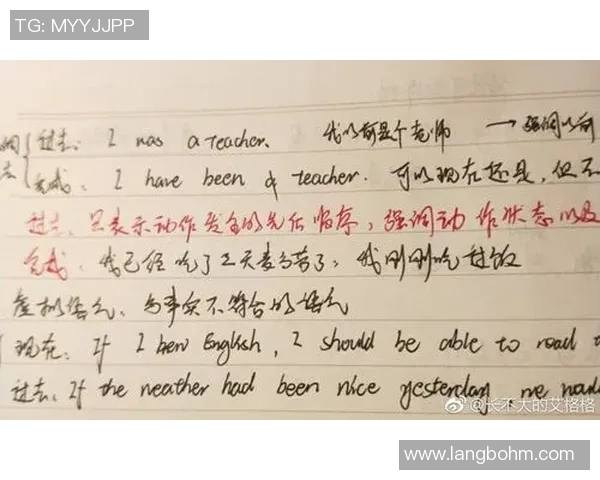 TG: MYYJJPP
过去: I was a teacher. 我以前是个老师 → 强调以前
完成. I have been a teacher. 可以现在还是, 但不
过去. 只表示动作发生的先后顺序, 强调动作状态以及
完成. 我已经吃了三天麦当劳了. 我刚刚吃过饭
虚拟语气. 与事实不符合的语气
现在: If I knew English, I should be able to read
过去. If the weather had been nice yesterday, we
@长不大的艾格格
www.langbohm.com